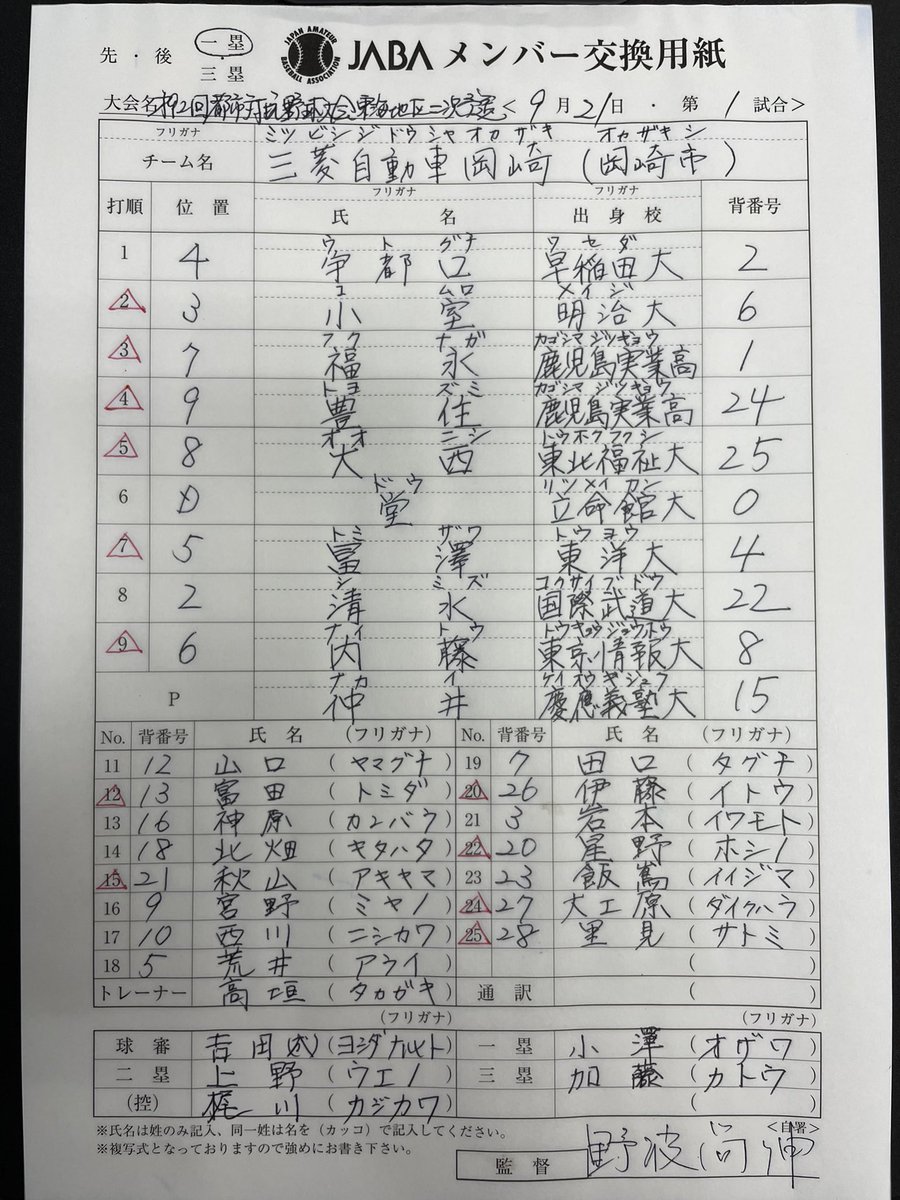 先・後 一塁 三塁
JAPAN AMATEUR BASEBALL ASSOCIATION JABA メンバー交換用紙
大会名 第92回都市対抗野球大会東海地区二次予選 <9月21日・第1試合>
フリガナ ミツビシジドウシャオカザキ オカザキシ
チーム名 三菱自動車岡崎(岡崎市)
フリガナ フリガナ
打順 位置 氏名 出身校 背番号
ウトグチ ワセダ
1 4 宇都口 早稲田大 2
コムロ メイジ
2 3 小室 明治大 6
フクナガ カゴシマジツギョウ
3 7 福永 鹿児島実業高 1
トヨズミ カゴシマジツギョウ
4 9 豊住 鹿児島実業高 24
オオニシ トウホクフクシ
5 8 大西 東北福祉大 25
ドウ リツメイカン
6 D 堂 立命館大 0
トミザワ トウヨウ
7 5 富澤 東洋大 4
シミズ コクサイブドウ
8 2 清水 国際武道大 22
ナイトウ トウキョウジョウホウ
9 6 内藤 東京情報大 8
ナカイ ケイオウギジュク
P 仲井 慶應義塾大 15
No. 背番号 氏名 (フリガナ) No. 背番号 氏名 (フリガナ)
11 12 山口 (ヤマグチ) 19 7 田口 (タグチ)
12 13 富田 (トミダ) 20 26 伊藤 (イトウ)
13 16 神原 (カンバラ) 21 3 岩本 (イワモト)
14 18 北畑 (キタハタ) 22 20 星野 (ホシノ)
15 21 秋山 (アキヤマ) 23 23 飯嶌 (イイジマ)
16 9 宮野 (ミヤノ) 24 27 大工原 (ダイクハラ)
17 10 西川 (ニシカワ) 25 28 里見 (サトミ)
18 5 荒井 (アライ) ( )
トレーナー 高垣 (タカガキ) 通訳 ( )
(フリガナ) (フリガナ)
球審 吉田成 (ヨシダナルト) 一塁 小澤 (オザワ)
二塁 上野 (ウエノ) 三塁 加藤 (カトウ)
(控) 梶川 (カジカワ) ( )
※氏名は姓のみ記入、同一姓は名を(カッコ)で記入してください。 <自署>
※複写式となっておりますので強めにお書き下さい。
監督 野波尚伸